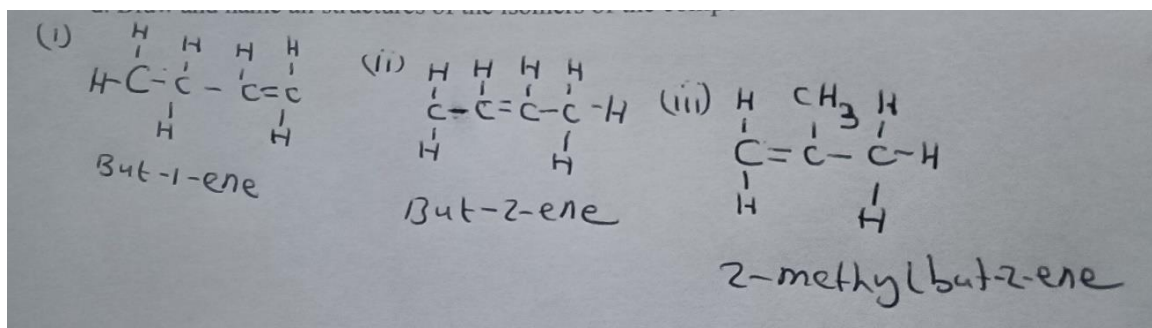 (i)
H H H H
H-C-C-C=C
H H
But-1-ene
(ii)
H H H H
C-C=C-C-H
H H
But-2-ene
(iii)
H CH3 H
C=C-C-H
H H
2-methylbut-2-ene